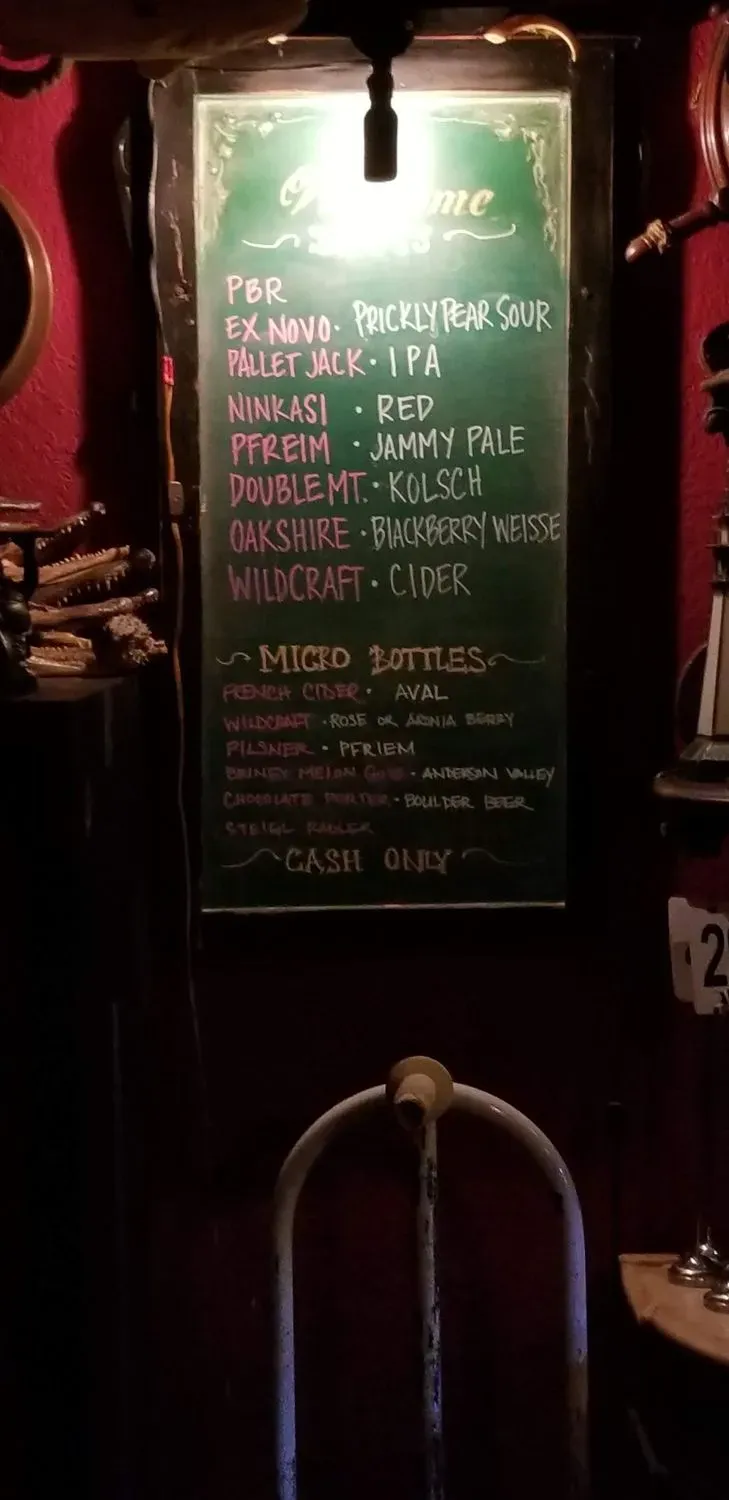 PBR
EX NOVO · PRICKLY PEAR SOUR
PALLET JACK · IPA
NINKASI · RED
PFREIM · JAMMY PALE
DOUBLE MT. · KOLSCH
OAKSHIRE · BLACKBERRY WEISSE
WILDCRAFT · CIDER
~ MICRO BOTTLES ~
FRENCH CIDER · AVAL
WILDCRAFT · ROSE OR ARONIA BERRY
PILSNER · PFRIEM
BRINEY MELON GOSE · ANDERSON VALLEY
CHOCOLATE PORTER · BOULDER BEER
STEIGL RADLER
~ CASH ONLY ~
2